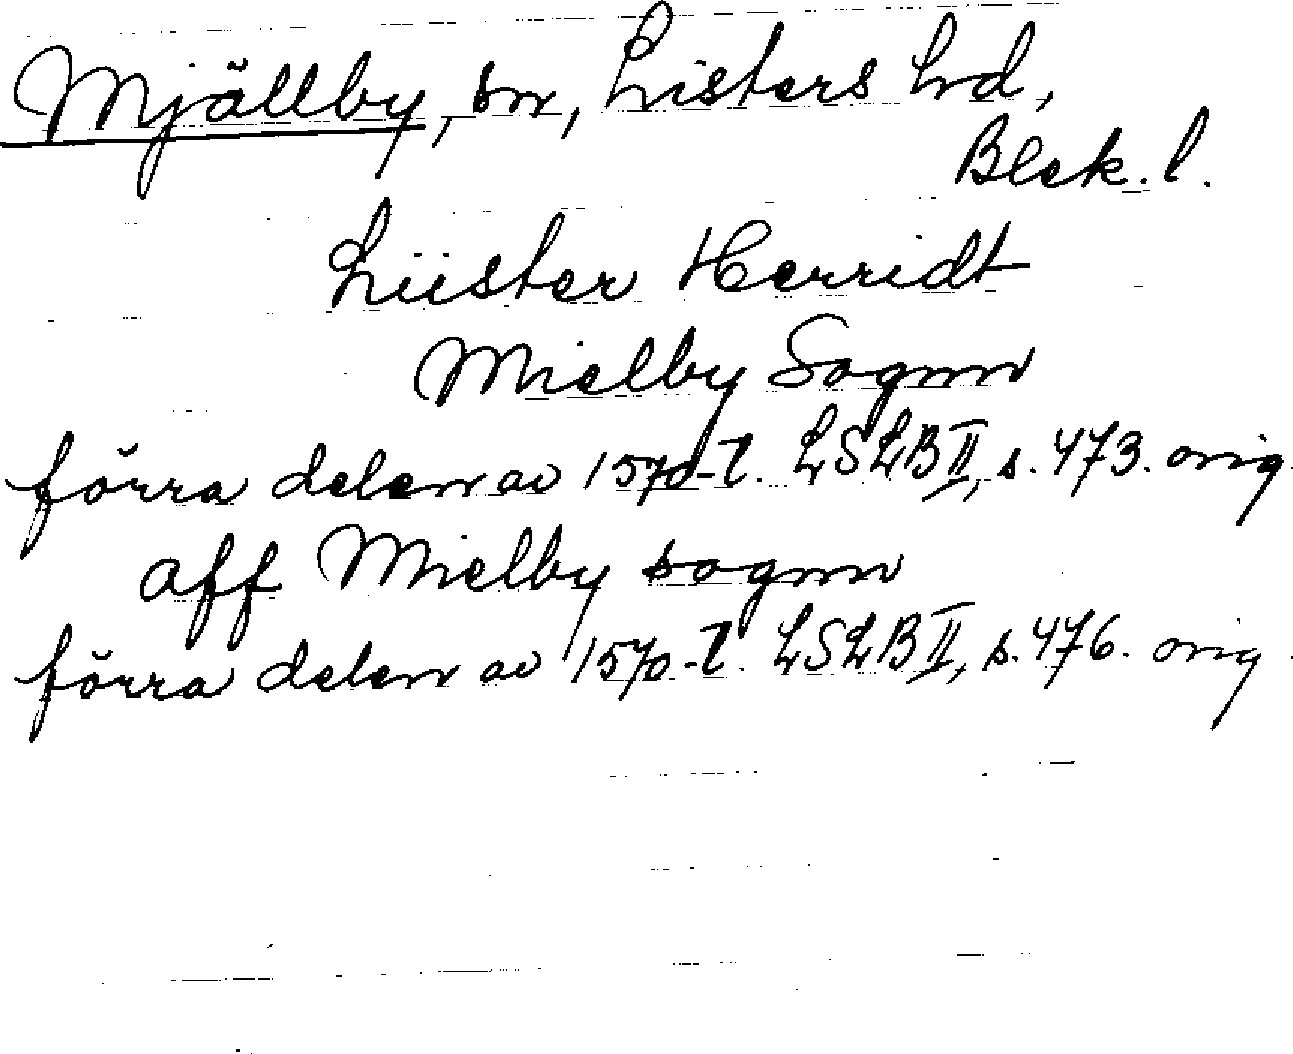 Mjällby, sn, Listers hd,
Blek. l.
Liister Herridt
Mielby Sognn
förra delen av 1570-t. LSLB II, s. 473. orig
aff Mielby sognn
förra delen av 1570-t. LSLB II, s. 476. orig.